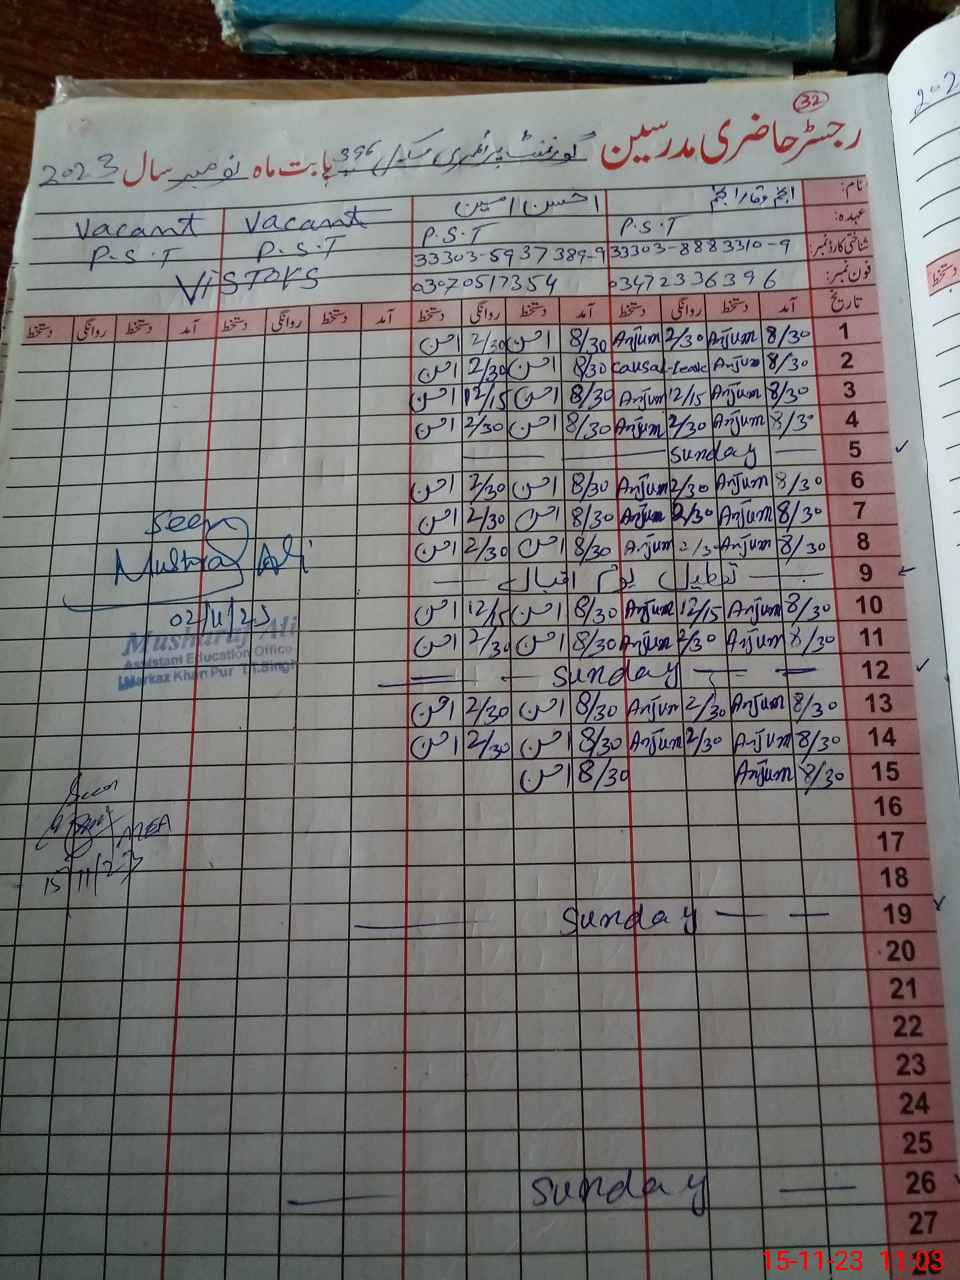 32
رجسٹر حاضری مدرسین گورنمنٹ پرائمری سکول 396 بابت ماہ نومبر سال 2023
نام: انجم وقار انجم احسن امین Vacant Vacant
عہدہ: P.S.T P.S.T P.S.T P.S.T
شناختی کارڈ نمبر: 33303-8883310-9 33303-5937389-9
فون نمبر: 03472336396 03070517354 Vistors
تاریخ آمد دستخط روانگی دستخط آمد دستخط روانگی دستخط آمد دستخط روانگی دستخط آمد دستخط روانگی دستخط
1 8/30 Anjum 2/30 Anjum 8/30 احسن 2/30 احسن
2 8/30 Anjum Causal-Leave 8/30 احسن 2/30 احسن
3 8/30 Anjum 12/15 Anjum 8/30 احسن 12/15 احسن
4 8/30 Anjum 2/30 Anjum 8/30 احسن 2/30 احسن
5 Sunday
6 8/30 Anjum 2/30 Anjum 8/30 احسن 2/30 احسن
7 8/30 Anjum 2/30 Anjum 8/30 احسن 2/30 احسن
8 8/30 Anjum 2/30 Anjum 8/30 احسن 2/30 احسن
9 تعطیل یوم اقبال
10 8/30 Anjum 12/15 Anjum 8/30 احسن 12/15 احسن
11 8/30 Anjum 2/30 Anjum 8/30 احسن 2/30 احسن
12 Sunday
13 8/30 Anjum 2/30 Anjum 8/30 احسن 2/30 احسن
14 8/30 Anjum 2/30 Anjum 8/30 احسن 2/30 احسن
15 8/30 Anjum 8/30 احسن
16
17
18
19 Sunday
20
21
22
23
24
25
26 Sunday
27
28
Seen
Musharaf Ali
02/11/23
Musharaf Ali
Assistant Education Office
Markaz Khan Pur T.T.Singh
Seen
MEA
15/11/23
202
دستخط
15-11-23 11:03